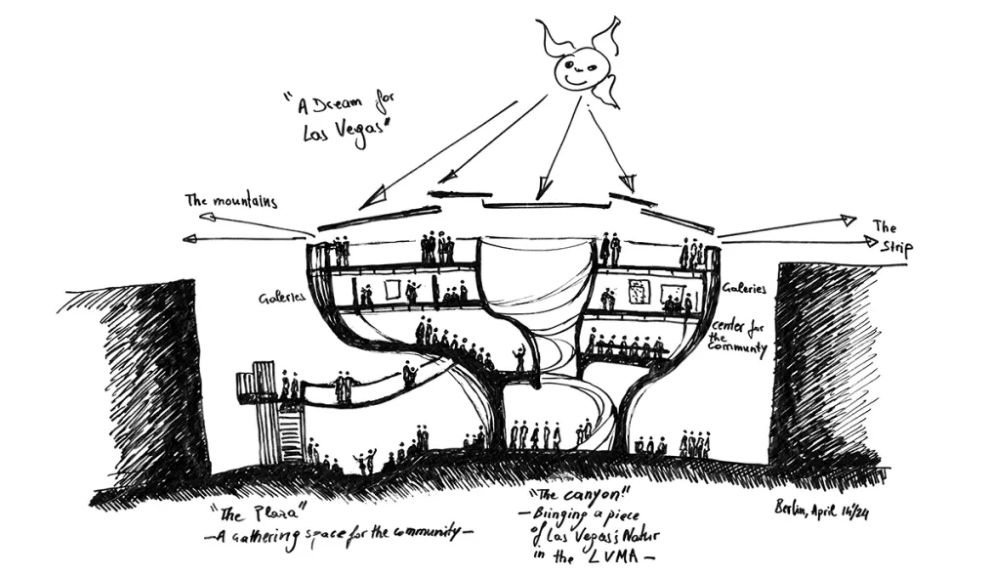 "A Dream for
Las Vegas"
The mountains
The
Strip
Galeries
Galeries
center for
the
Communty
"The Plaza"
—A gathering space for the community—
"The canyon"
—Bringing a piece
of Las Vegas's Natur
in the LVMA—
Berlin, April 14/24